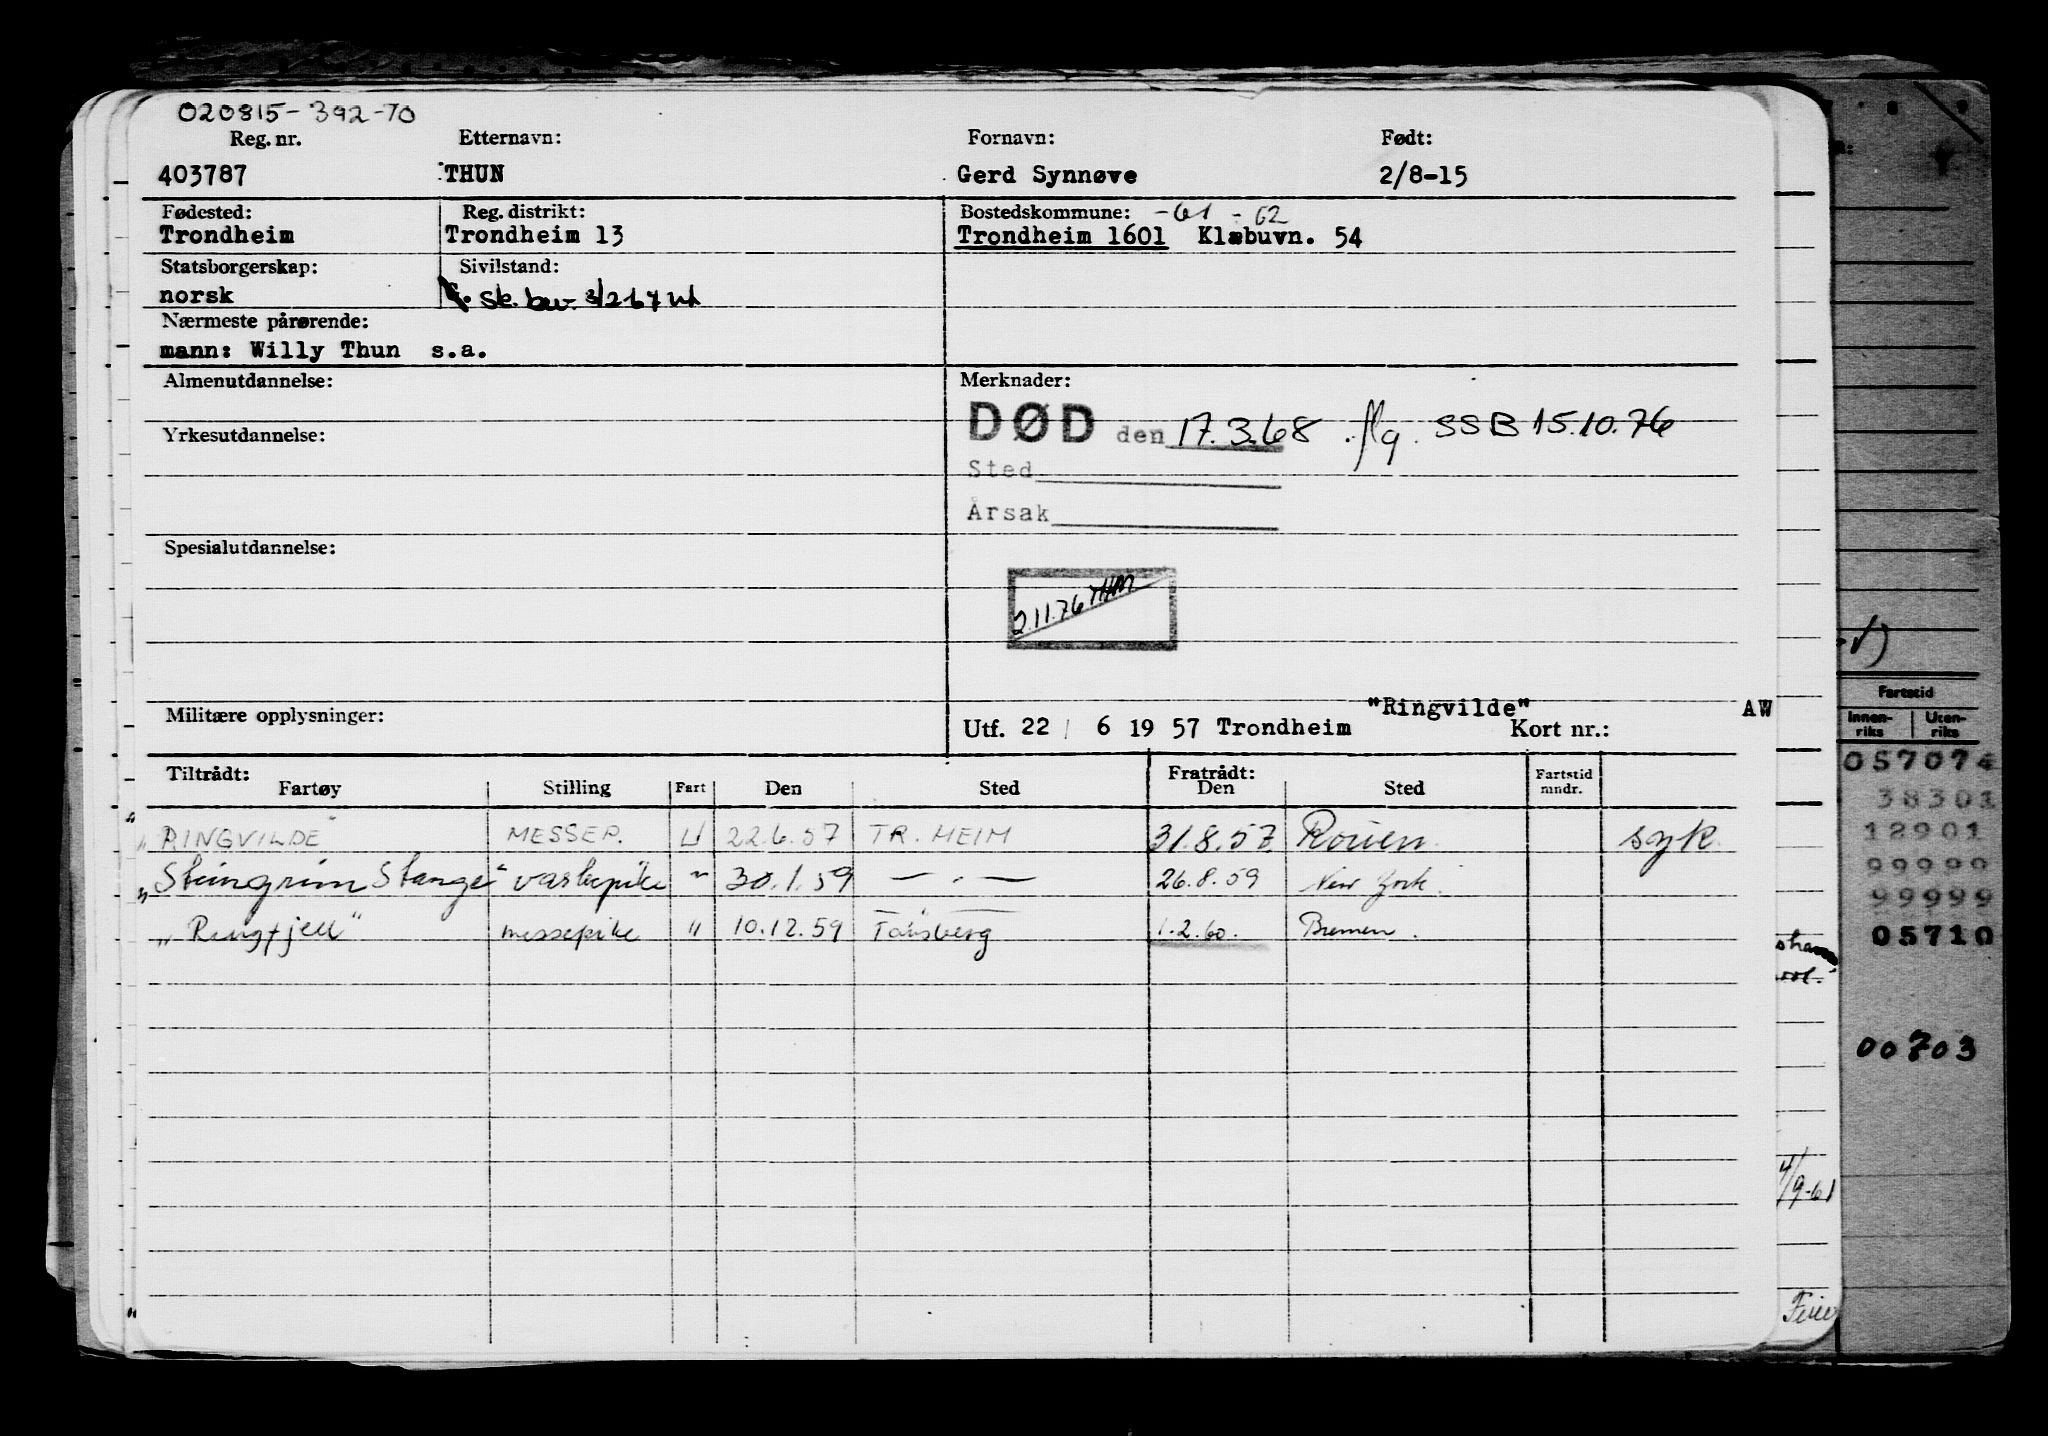 020815-392-70
Reg. nr. Etternavn: Fornavn: Født:
403787 THUN Gerd Synnøve 2/8-15
Fødested: Reg. distrikt: Bostedskommune: -61 -62
Trondheim Trondheim 13 Trondheim 1601 Klæbuvn. 54
Statsborgerskap: Sivilstand:
norsk sk. bev. 3/2 67
Nærmeste pårørende:
mann: Willy Thun s.a.
Almenutdannelse: Merknader:
DØD den 17.3.68 . flg. SSB 15.10.76
Yrkesutdannelse:
Sted
Årsak
Spesialutdannelse:
2.11.76
"Ringvilde" AW
Militære opplysninger: Utf. 22 / 6 19 57 Trondheim Kort nr.:
Tiltrådt: Fratrådt: Fartstid
Fartøy Stilling Fart Den Sted Den Sted mndr.
"RINGVILDE" MESSEP. U 22.6.57 TR.HEIM 31.8.57. Rouen. syk.
"Steingrim Stange" vaskepike " 30.1.59 — . — 26.8.59 New York.
"Ringfjell" messepike " 10.12.59 Tønsberg 1.2.60. Bremen.
Fartstid
Innen- Uten-
riks riks
057074
38301
12901
99999
99999
05710
00703
4/9-61